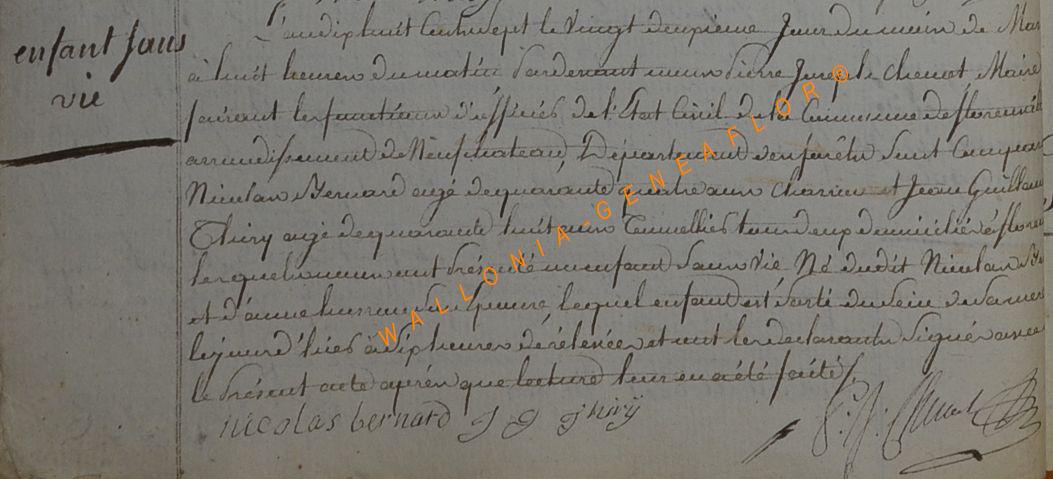 enfant sans
vie
L'an dix huit Cent sept le vingt deuxieme Jour du mois de Mar
à huit heures du matin Pardevant nous Pierre Joseph Chenot Maire
faisant les fonctions d'officier de l'Etat Civil de la Commune de florenvil
arrondissement de Neufchateau, Département des forêts sont Compar
Nicolas Bernard agé de quarante quatre ans et Jean Guillaum
Thiry agé de quarante huit ans Tonnellier tous deux domiciliés à floren
lesquels nous ont présenté un enfant sans vie Né dudit Nicolas
et d'anne son Epouse, lequel enfant est sorti du sein de sa mer
le jour d'hier à dix heures de relevée et ont les declarants Signé avec
le présent acte après que lecture leur en a été faite
nicolas bernard J G Thiry
P. J. Chenot
WALLONIA-GENEAFLOR©